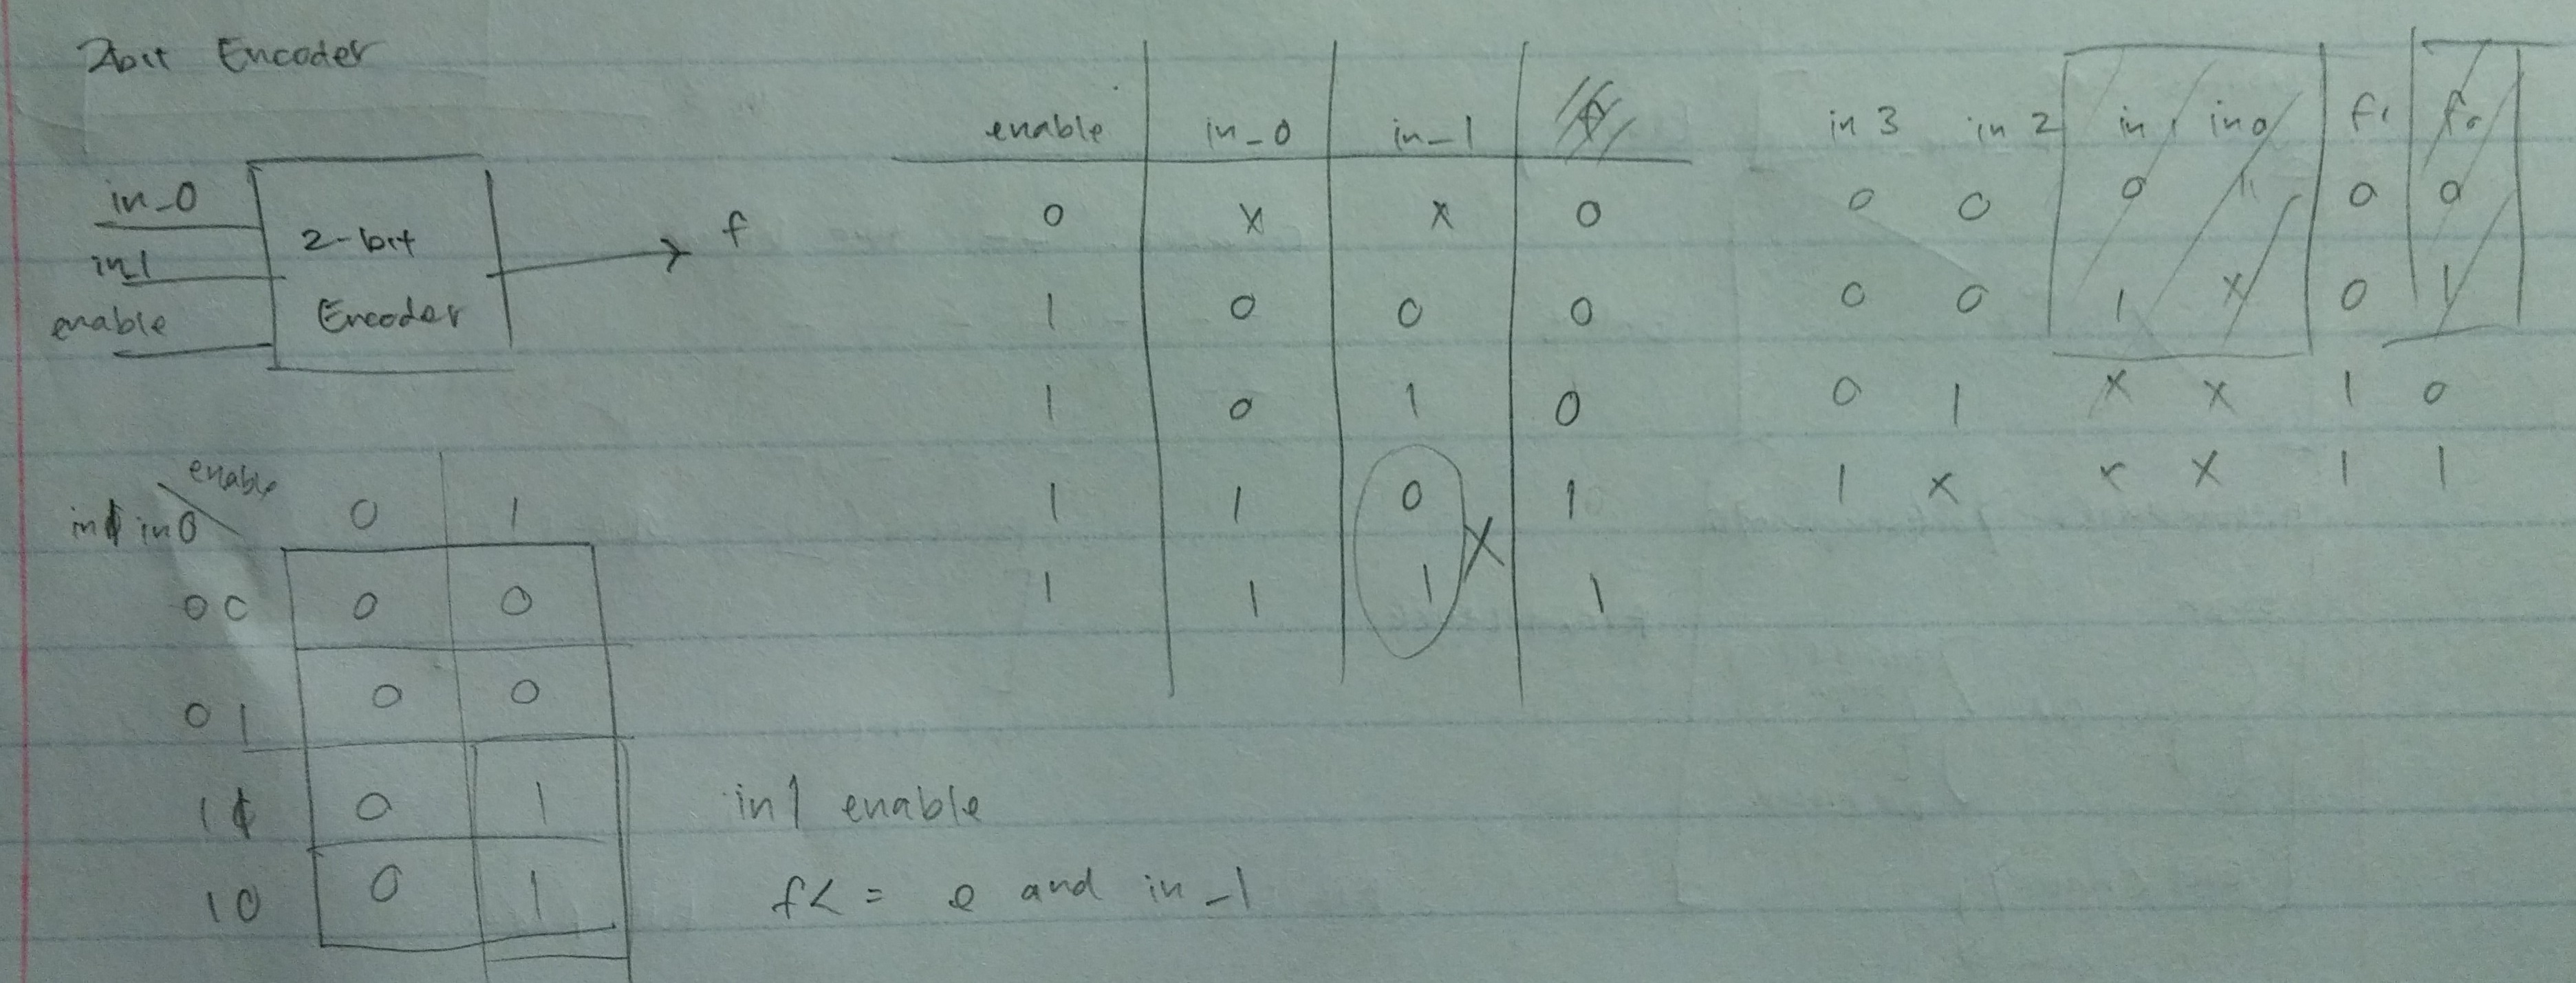 2bit Encoder
in_0
in_1
enable
2-bit
Encoder
f
enable in_0 in_1
0 x x 0
1 0 0 0
1 0 1 0
1 1 0 1
1 1 1 1
X
in 3 in 2 in 1 in 0 f1 f0
0 0 0 0 0
0 0 1 x 0 1
0 1 x x 1 0
1 x x x 1 1
enable
in1 in0 0 1
00 0 0
01 0 0
11 0 1
10 0 1
in1 enable
f<= e and in_1